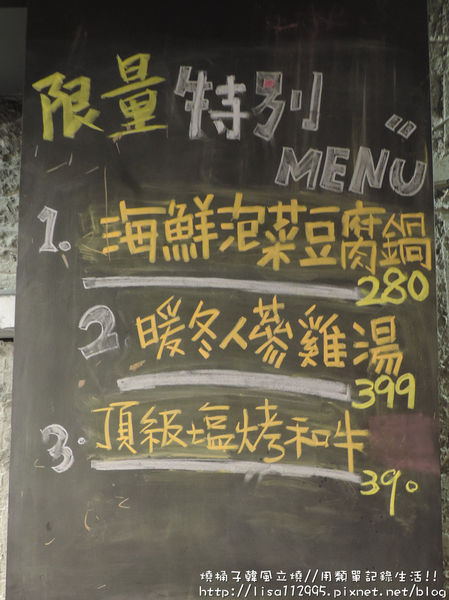 限量特別
MENU
1. 海鮮泡菜豆腐鍋
280
2 暖冬人蔘雞湯
399
3. 頂級塩烤和牛
390
燒桶子韓風立燒//用類單記錄生活!!
http://lisa112995.pixnet.net/blog